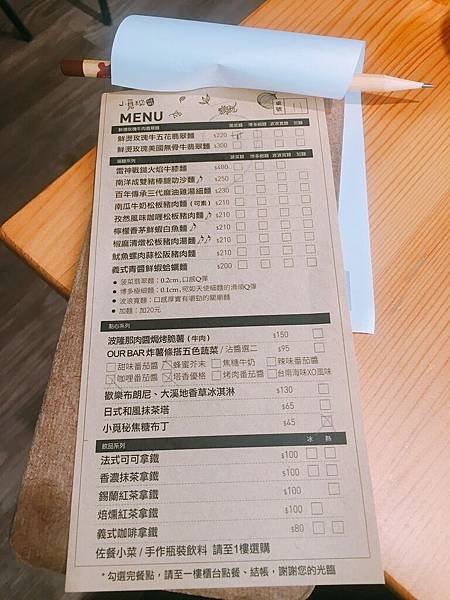 小覓秘麵
MENU
桌號
鮮燙玫瑰牛肉翡翠麵 菠菜麵 博多細麵 波浪寬麵 加麵
鮮燙玫瑰牛五花翡翠麵 $220
鮮燙玫瑰美國無骨牛翡翠麵 $300
湯麵系列 菠菜麵 博多細麵 波浪寬麵 加麵
雷神戰鎚火焰牛膝麵 $480
南洋成雙豬棒腿叻沙麵 $250
百年傳承三代麻油雞湯細麵 $230
南瓜牛奶松板豬肉麵 (可素) $210
孜然風味咖喱松板豬肉麵 $210
檸檬香茅鮮蝦白魚麵 $210
椒麻清燉松板豬肉湯麵 $210
魷魚螺肉蒜松阪豬肉麵 $230
義式青醬鮮蝦蛤蠣麵 $200
● 菠菜翡翠麵:0.2cm,口感Q彈
● 博多極細麵:0.1cm,宛如天使細麵的滑順Q彈
● 波浪寬麵:口感厚實有嚼勁的關廟麵
● 加麵:加20元
點心系列
波隆那肉醬焗烤脆薯 (牛肉) $150
OUR BAR 炸薯條搭五色蔬菜 / 沾醬選二 $95
甜味番茄醬 蜂蜜芥末 焦糖牛奶 辣味番茄醬
咖哩番茄醬 塔香優格 烤肉番茄醬 台南海味XO風味
歡樂布朗尼、大溪地香草冰淇淋 $130
日式和風抹茶塔 $65
小覓秘焦糖布丁 $45
飲品系列 冰 熱
法式可可拿鐵 $100
香濃抹茶拿鐵 $100
錫蘭紅茶拿鐵 $100
焙燻紅茶拿鐵 $100
義式咖啡拿鐵 $80
佐餐小菜 / 手作瓶裝飲料 請至1樓選購
* 勾選完餐點,請至一樓櫃台點餐、結帳,謝謝您的光臨